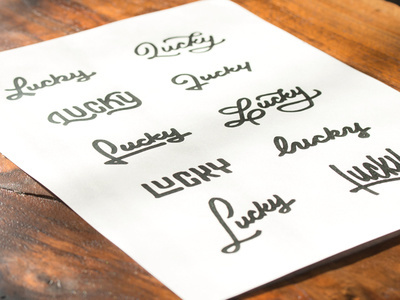 Lucky
Lucky
Lucky
LUCKY
Lucky
Lucky
lucky
LUCKY
Lucky
Lucky